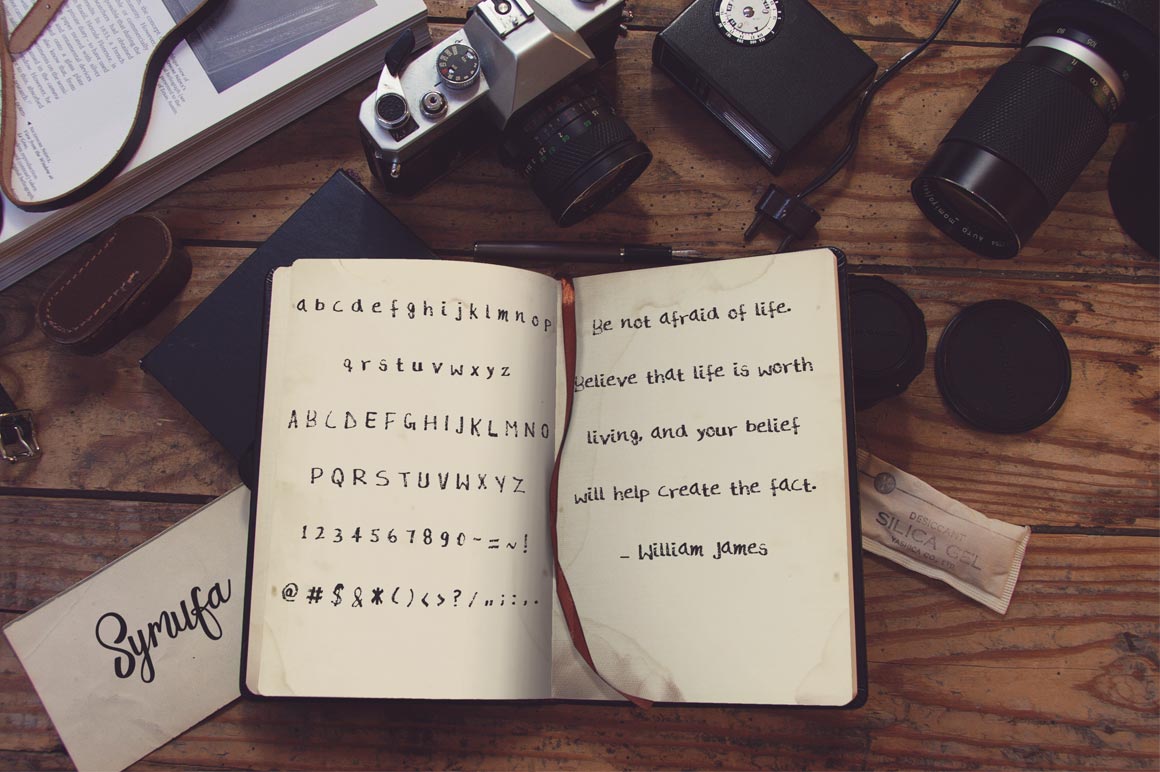 a b c d e f g h i j k l m n o p
q r s t u v w x y z
A B C D E F G H I J K L M N O
P Q R S T U V W X Y Z
1 2 3 4 5 6 7 8 9 0 - = ~ !
@ # $ & * ( ) < > ? / " ; : , .
Be not afraid of life.
Believe that life is worth
living, and your belief
will help create the fact.
- William James
Symufa
DESICCANT
SILICA GEL
YASHICA CO., LTD